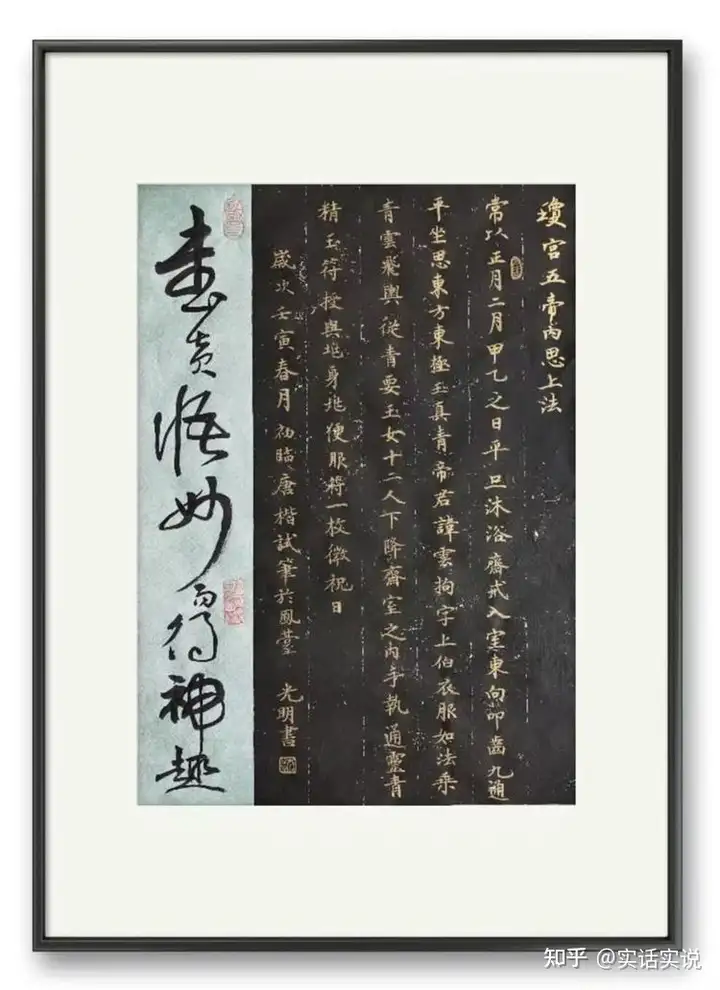 瓊宮五帝內思上法
常以正月二月甲乙之日平旦沐浴齋戒入室東向叩齒九通
平坐思東方東極玉真青帝君諱雲拘字上伯衣服如法乘
青雲飛輿從青要玉女十二人下降齋室之內手執通靈青
精玉符授與兆身兆便服符一枚微祝曰
歲次壬寅春月初臨唐楷試筆於鳳臺 光明書
書貴悟妙而得神趣
知乎 @实话实说